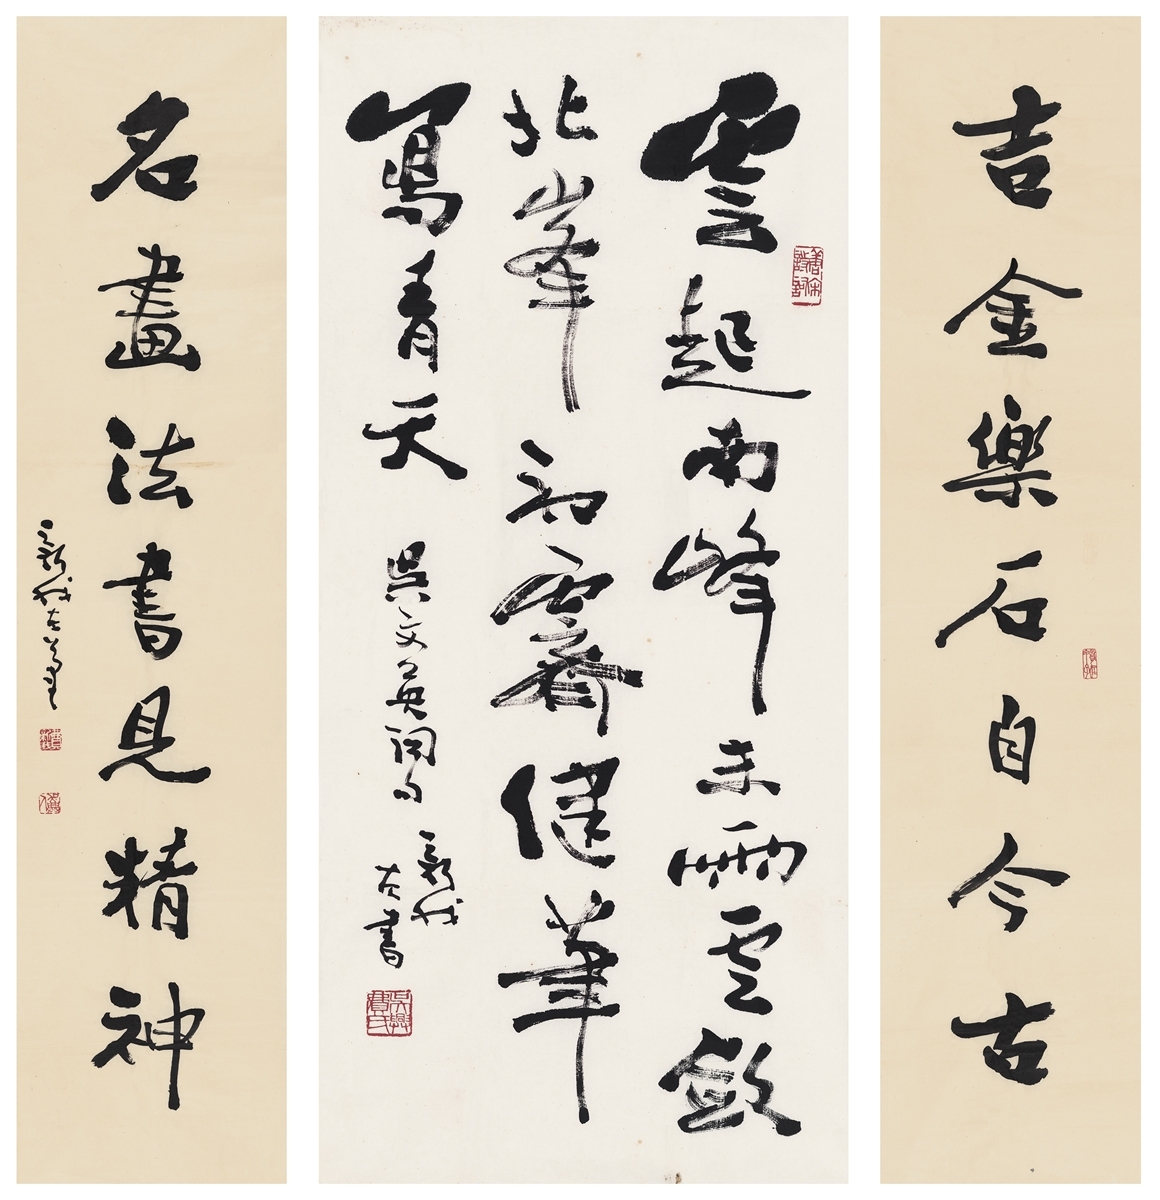 吉金樂石自今古
雲起南峰未雨雲斂
北峯初霽健筆
寫青天
吳文英詞句
新我
左書
吳興費氏
名畫法書見精神
新我左筆